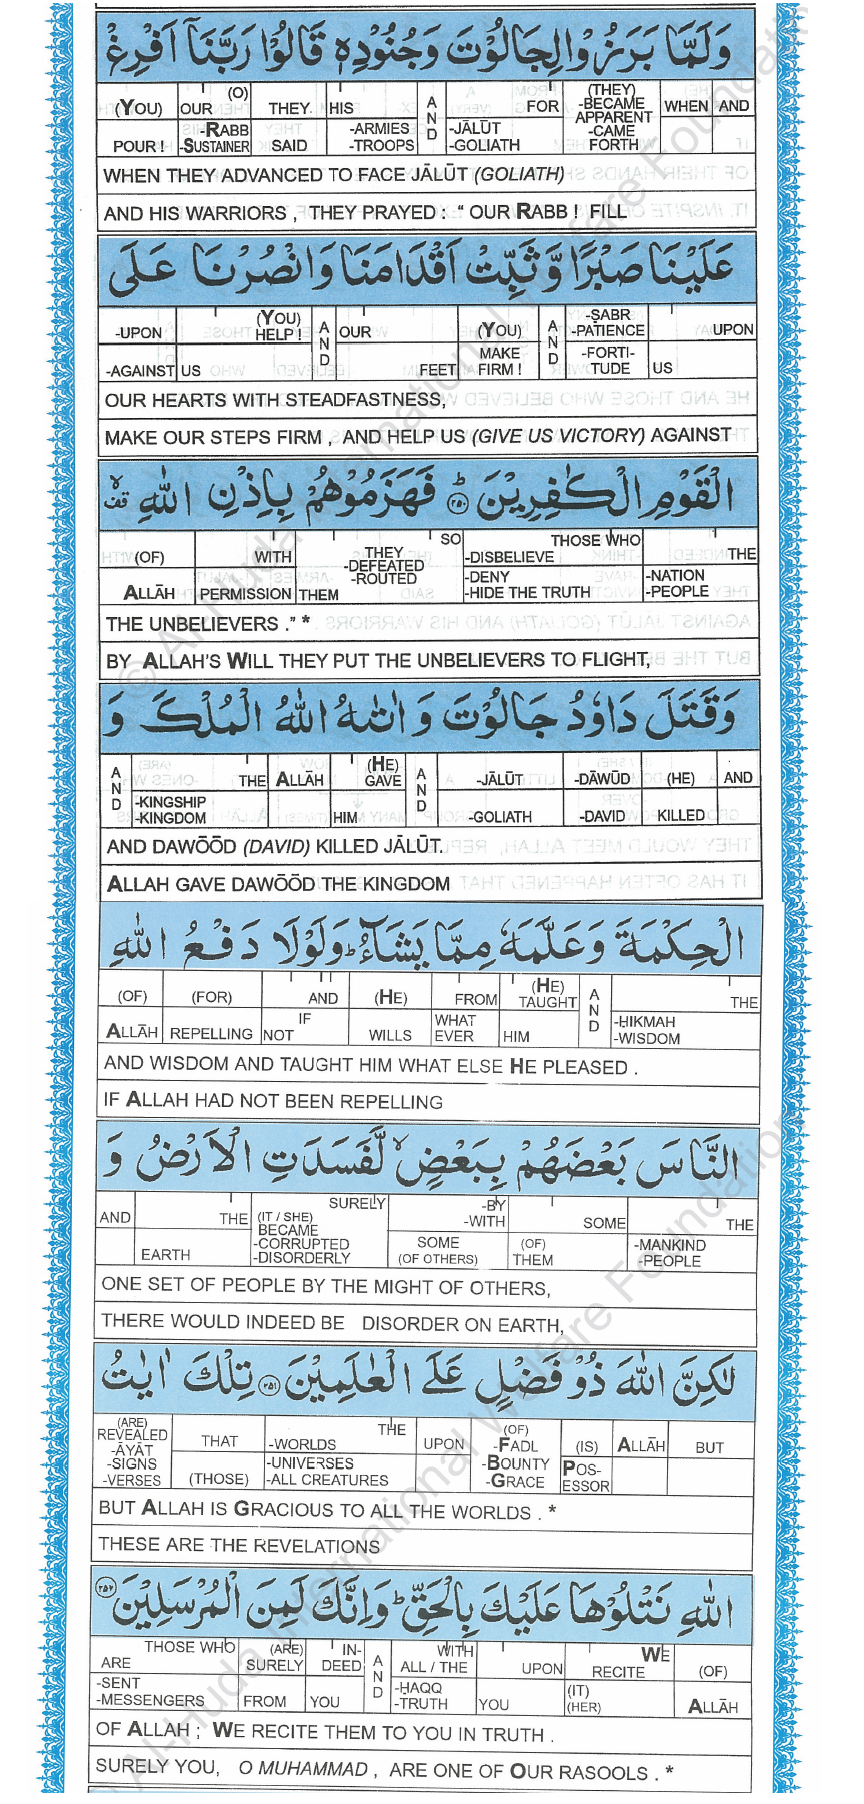 وَلَمَّا بَرَزُوا لِجَالُوْتَ وَجُنُوْدِهٖ قَالُوْا رَبَّنَآ اَفْرِغْ
(YOU) OUR (O) THEY. HIS AND FOR (THEY) -BECAME APPARENT -CAME FORTH WHEN AND
POUR ! -RABB -SUSTAINER SAID -ARMIES -TROOPS -JĀLŪT -GOLIATH
WHEN THEY ADVANCED TO FACE JĀLŪT (GOLIATH)
AND HIS WARRIORS , THEY PRAYED : " OUR RABB ! FILL
عَلَيْنَا صَبْرًا وَّثَبِّتْ اَقْدَامَنَا وَانْصُرْنَا عَلَى
-UPON (YOU) HELP ! AND OUR (YOU) AND -ṢABR -PATIENCE UPON
-AGAINST US FEET MAKE FIRM ! -FORTI-TUDE US
OUR HEARTS WITH STEADFASTNESS,
MAKE OUR STEPS FIRM , AND HELP US (GIVE US VICTORY) AGAINST
الْقَوْمِ الْكٰفِرِيْنَ ﴿٢٥٠﴾ فَهَزَمُوْهُمْ بِاِذْنِ اللّٰهِ
(OF) WITH SO THEY -DEFEATED -ROUTED THOSE WHO -DISBELIEVE THE
ALLĀH PERMISSION THEM -DENY -HIDE THE TRUTH -NATION -PEOPLE
THE UNBELIEVERS ." *
BY ALLAH'S WILL THEY PUT THE UNBELIEVERS TO FLIGHT,
وَقَتَلَ دَاوٗدُ جَالُوْتَ وَاٰتٰىهُ اللّٰهُ الْمُلْكَ وَ
AND THE ALLĀH (HE) GAVE AND -JĀLŪT -DĀWŪD (HE) AND
-KINGSHIP -KINGDOM HIM -GOLIATH -DAVID KILLED
AND DAWŌŌD (DAVID) KILLED JĀLŪT.
ALLAH GAVE DAWŌŌD THE KINGDOM
الْحِكْمَةَ وَعَلَّمَهٗ مِمَّا يَشَآءُ ؕ وَلَوْلَا دَفْعُ اللّٰهِ
(OF) (FOR) AND (HE) FROM (HE) TAUGHT AND THE
ALLĀH REPELLING IF NOT WILLS WHAT EVER HIM -ḤIKMAH -WISDOM
AND WISDOM AND TAUGHT HIM WHAT ELSE HE PLEASED .
IF ALLAH HAD NOT BEEN REPELLING
النَّاسَ بَعْضَهُمْ بِبَعْضٍ لَّفَسَدَتِ الْاَرْضُ وَ
AND THE SURELY (IT / SHE) BECAME -BY -WITH SOME THE
EARTH -CORRUPTED -DISORDERLY SOME (OF OTHERS) (OF) THEM -MANKIND -PEOPLE
ONE SET OF PEOPLE BY THE MIGHT OF OTHERS,
THERE WOULD INDEED BE DISORDER ON EARTH,
لٰكِنَّ اللّٰهَ ذُوْ فَضْلٍ عَلَى الْعٰلَمِيْنَ ﴿٢٥١﴾ تِلْكَ اٰيٰتُ
(ARE) REVEALED -ĀYĀT THAT THE -WORLDS UPON (OF) -FADL (IS) ALLĀH BUT
-SIGNS -VERSES (THOSE) -UNIVERSES -ALL CREATURES -BOUNTY -GRACE POS-ESSOR
BUT ALLAH IS GRACIOUS TO ALL THE WORLDS . *
THESE ARE THE REVELATIONS
اللّٰهِ نَتْلُوْهَا عَلَيْكَ بِالْحَقِّ ؕ وَاِنَّكَ لَمِنَ الْمُرْسَلِيْنَ ﴿٢٥٢﴾
THOSE WHO ARE (ARE) SURELY IN-DEED AND WITH ALL / THE UPON WE RECITE (OF)
-SENT -MESSENGERS FROM YOU -ḤAQQ -TRUTH YOU (IT) (HER) ALLĀH
OF ALLAH ; WE RECITE THEM TO YOU IN TRUTH .
SURELY YOU, O MUHAMMAD , ARE ONE OF OUR RASOOLS . *
© Al-Huda International Welfare Foundation
Al-Huda International Welfare Foundation